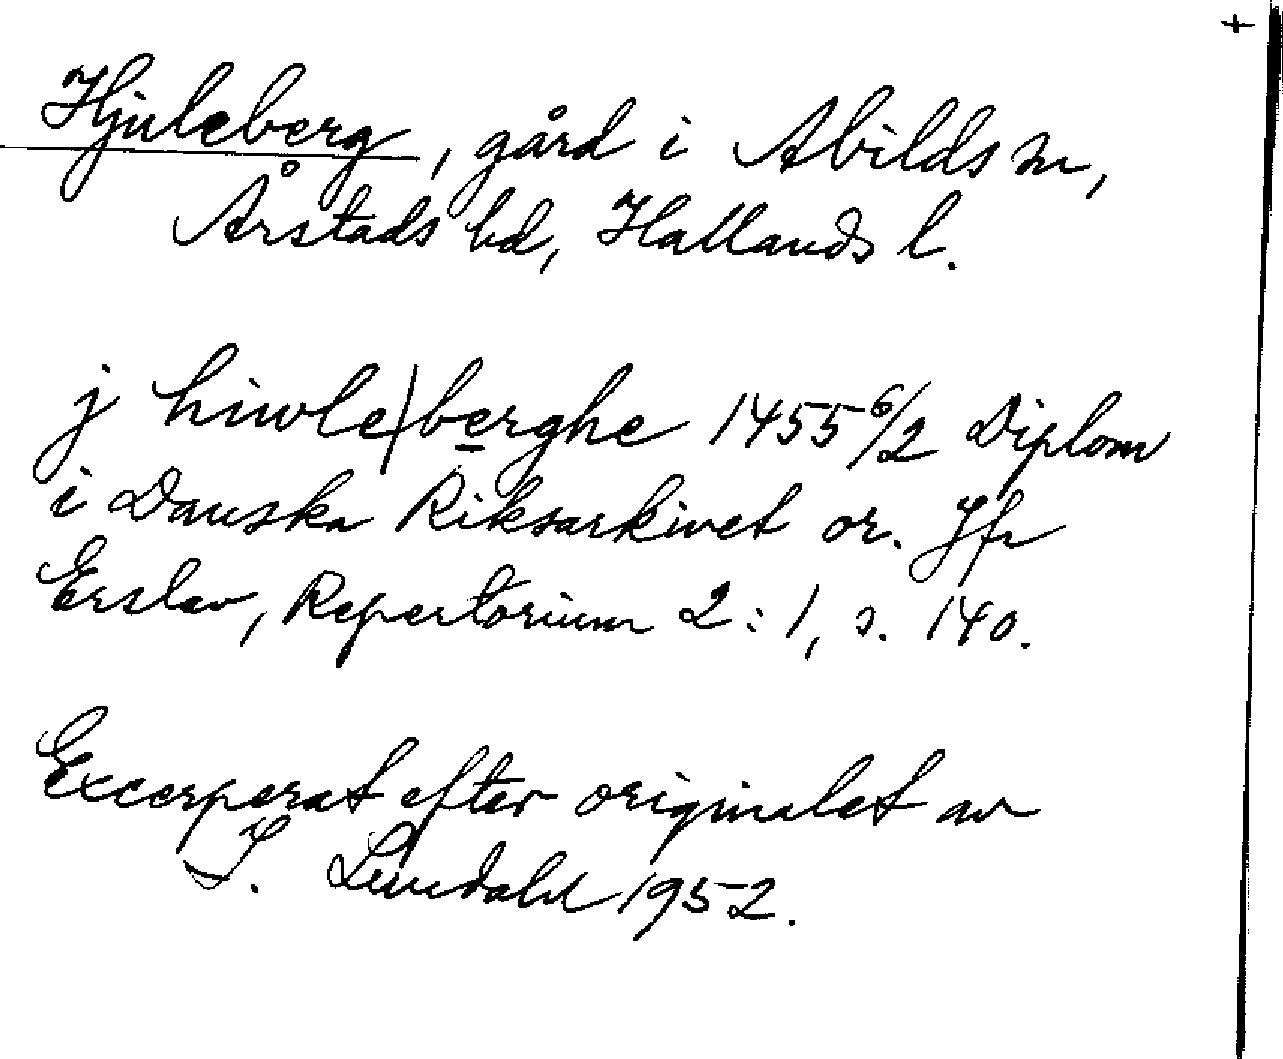 +
Hjuleberg, gård i Abilds sn,
Årstads hd, Hallands l.
j hiwle|berghe 1455 6/2 Diplom
i Danska Riksarkivet or. Jfr
Erslev, Repertorium 2:1, s. 140.
Excerperat efter originalet av
I. Lindahl 1952.